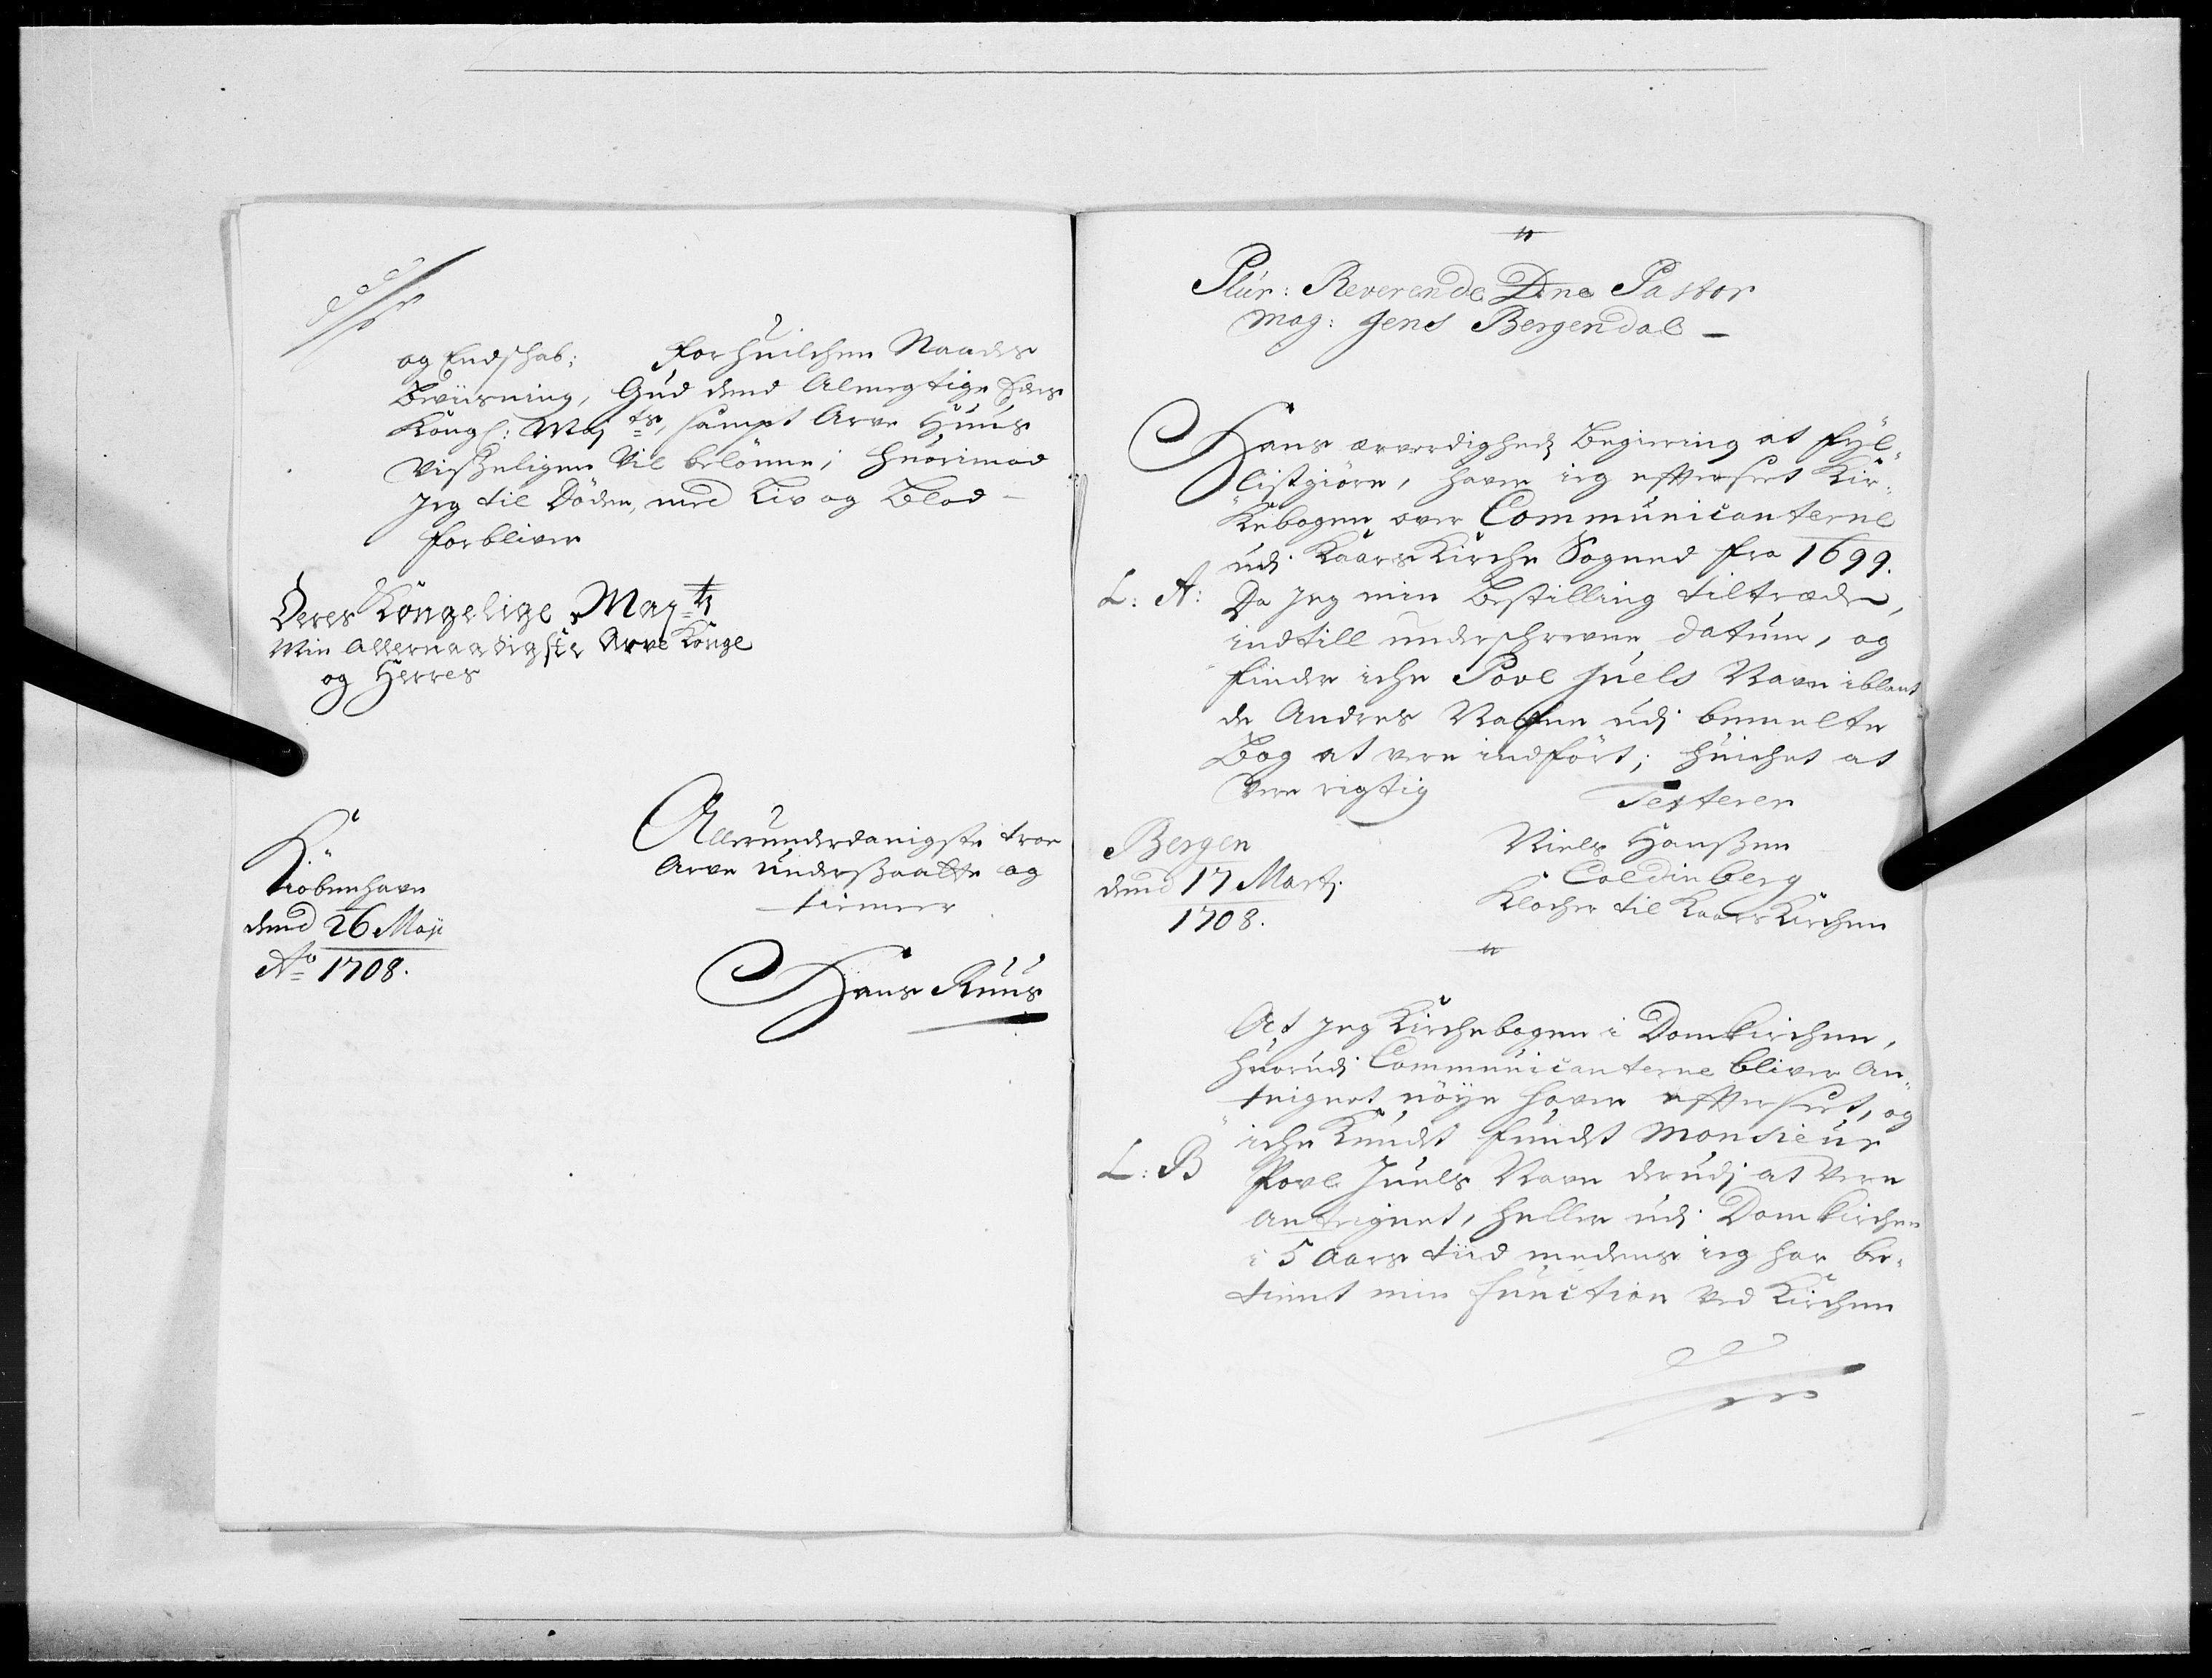 og Endschab: Forhuilchen Naades
Beviisning, Gud dend Almegtige Hans
Kongl: Maj ts, sampt Arve Huus
visseligen vil belönne; Huorimod
Jeg til Döden, med Liv og Blod -
forbliver
Deres Kongelige Maj ts
Min Allernaadigste Arve Konge
og Herres
Allerunderdanigste troe
Arve undersaatte og
tienner
Kiöbenhavn
dend 26 Maji
Ao 1708.
Hans Ruus
Plur: Reverende Dne Pastor
Mag: Jens Bergendal -
Hans ærværdigheds Begiering at fyl-
listgiöre, haver ieg efterseet Kir-
kebogen over Communicanterne
udj Kaars Kirche Sogned fra 1699.
L: A: Da Jeg min Bestilling tiltræde,
indtill underschrevne datum, og
finder iche Povl Juels Navn iblant
de Andres Nafne udj bemelte
Bog at vere indfört; huichet at
vere rigtig
Testerer
Bergen
dend 17 Martj.
1708.
Niels Hanssen
Coldinberg
Klocher til Kaars Kirchen
At jeg Kirchebogen i Domkirchen,
huorudj Communicanterne bliver An-
teignet nöye haver efterseet, og
iche kundet fundet Monsieur
L: B Povl Juels Navn derudj at vere
Anteignet, heller udj Domkirchen
i 5 Aars tiid medens ieg har be-
tient min function ved Kirchen